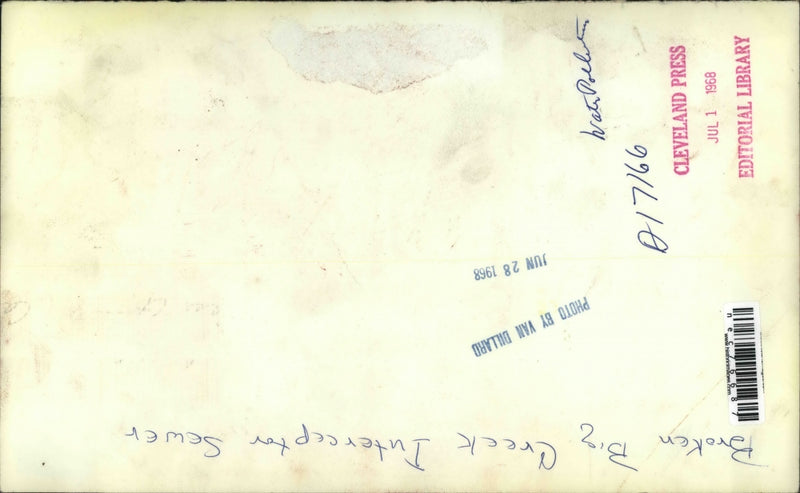 Water Pollution
D17166
CLEVELAND PRESS
JUL 1 1968
EDITORIAL LIBRARY
JUN 28 1968
PHOTO BY VAN DILLARD
Broken Big Creek Interceptor Sewer